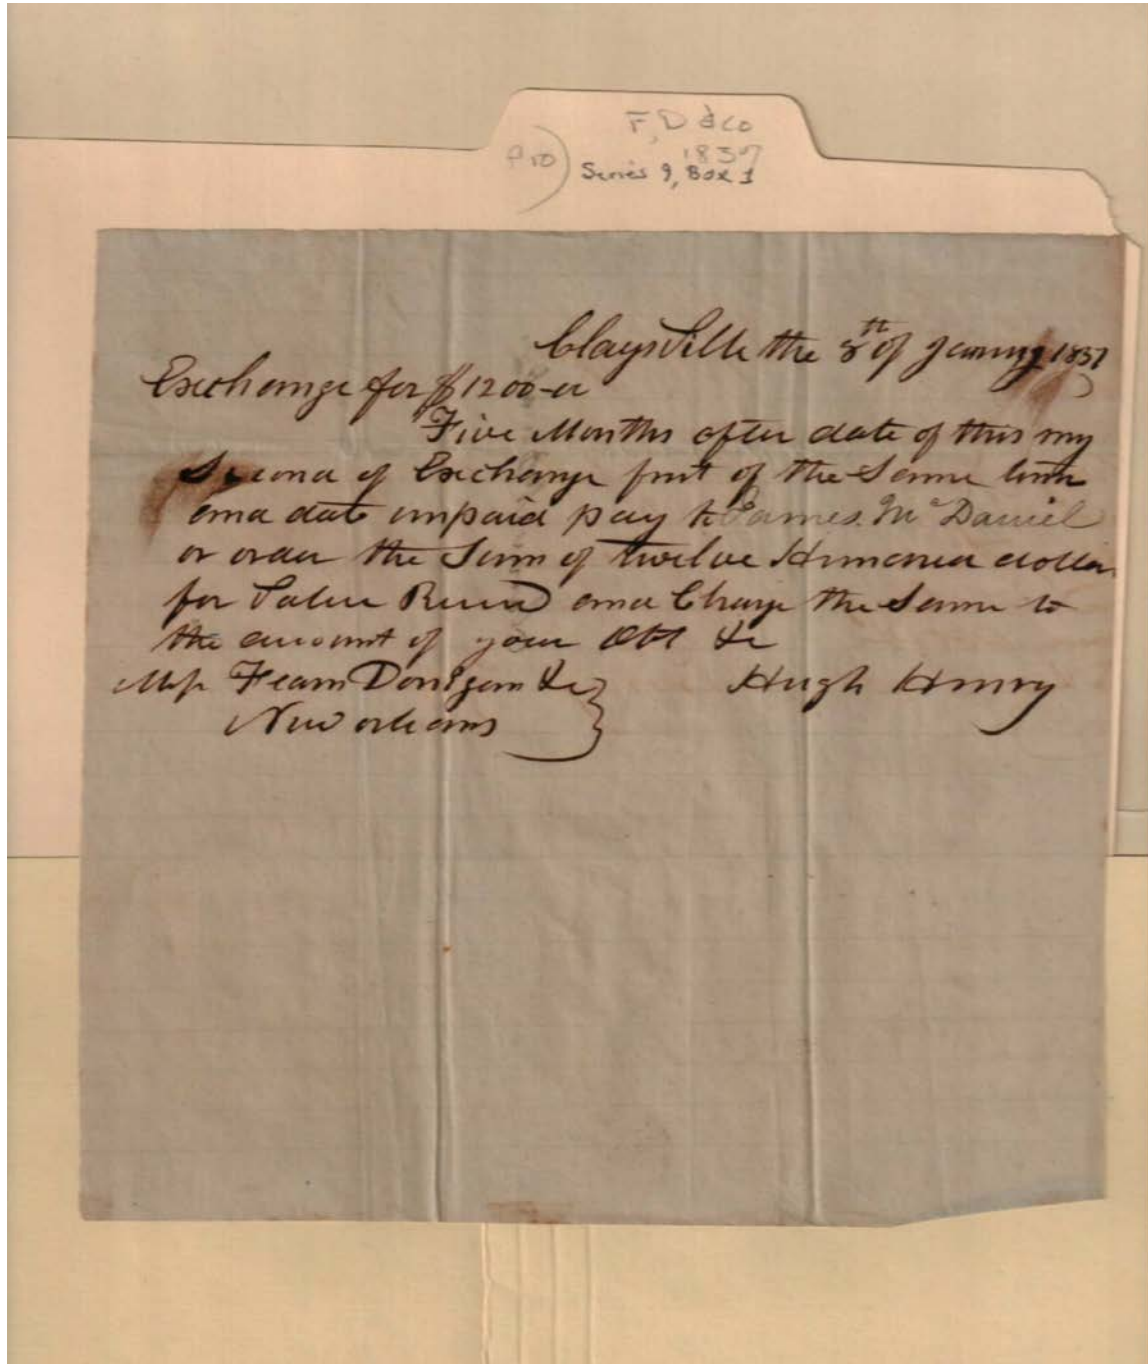 F, D & Co
1837
Pro) Series 9, Box 1
Claysville the 8th of January 1837
Exchange for $1200-00
Five Months after date of this my
Second of Exchange first of the Same time
and date unpaid pay to James McDaniel
or order the Sum of twelve Hundred dollars
for Value Recd and Charge the Same to
the account of your Obt &c
Messrs Fearn Donegan &c
Hugh Henry
New orleans